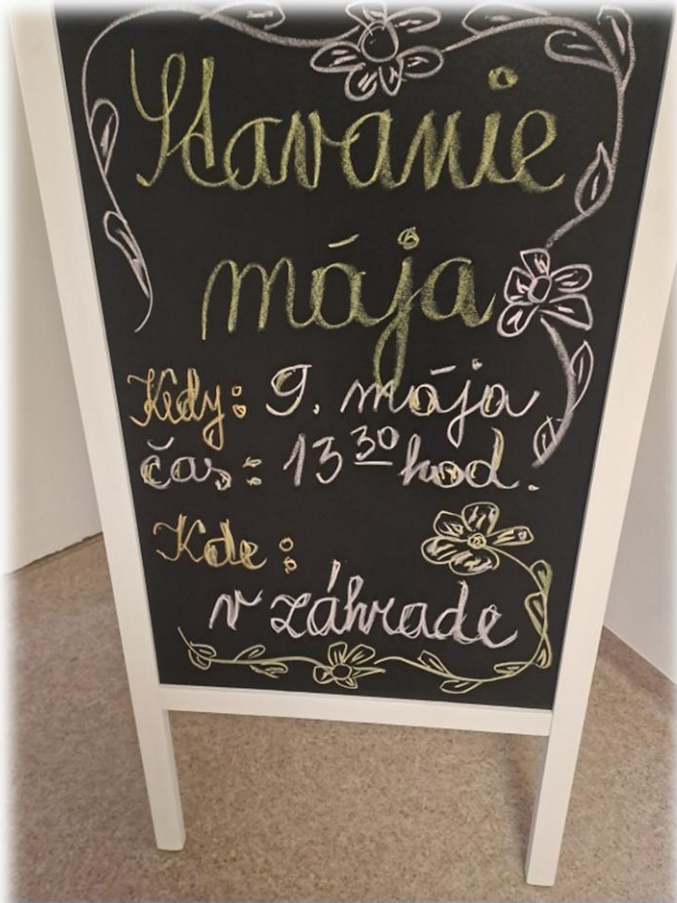 Stavanie
mája
Kedy: 9. mája
čas: 13³⁰ hod.
Kde:
v záhrade